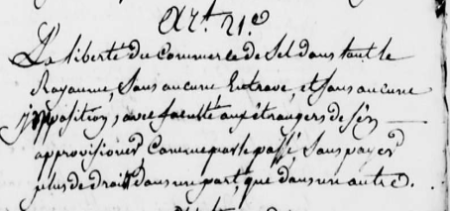 Art. 21.e
La liberté du Commerce de Sel dans tout le
Royaume, Sans aucune Entrave, et sans aucune
imposition, avec faculté aux étrangers de s'en
approvisioner, Comme par le passé, Sans payer
plus de droit dans un part, que dans un autre.